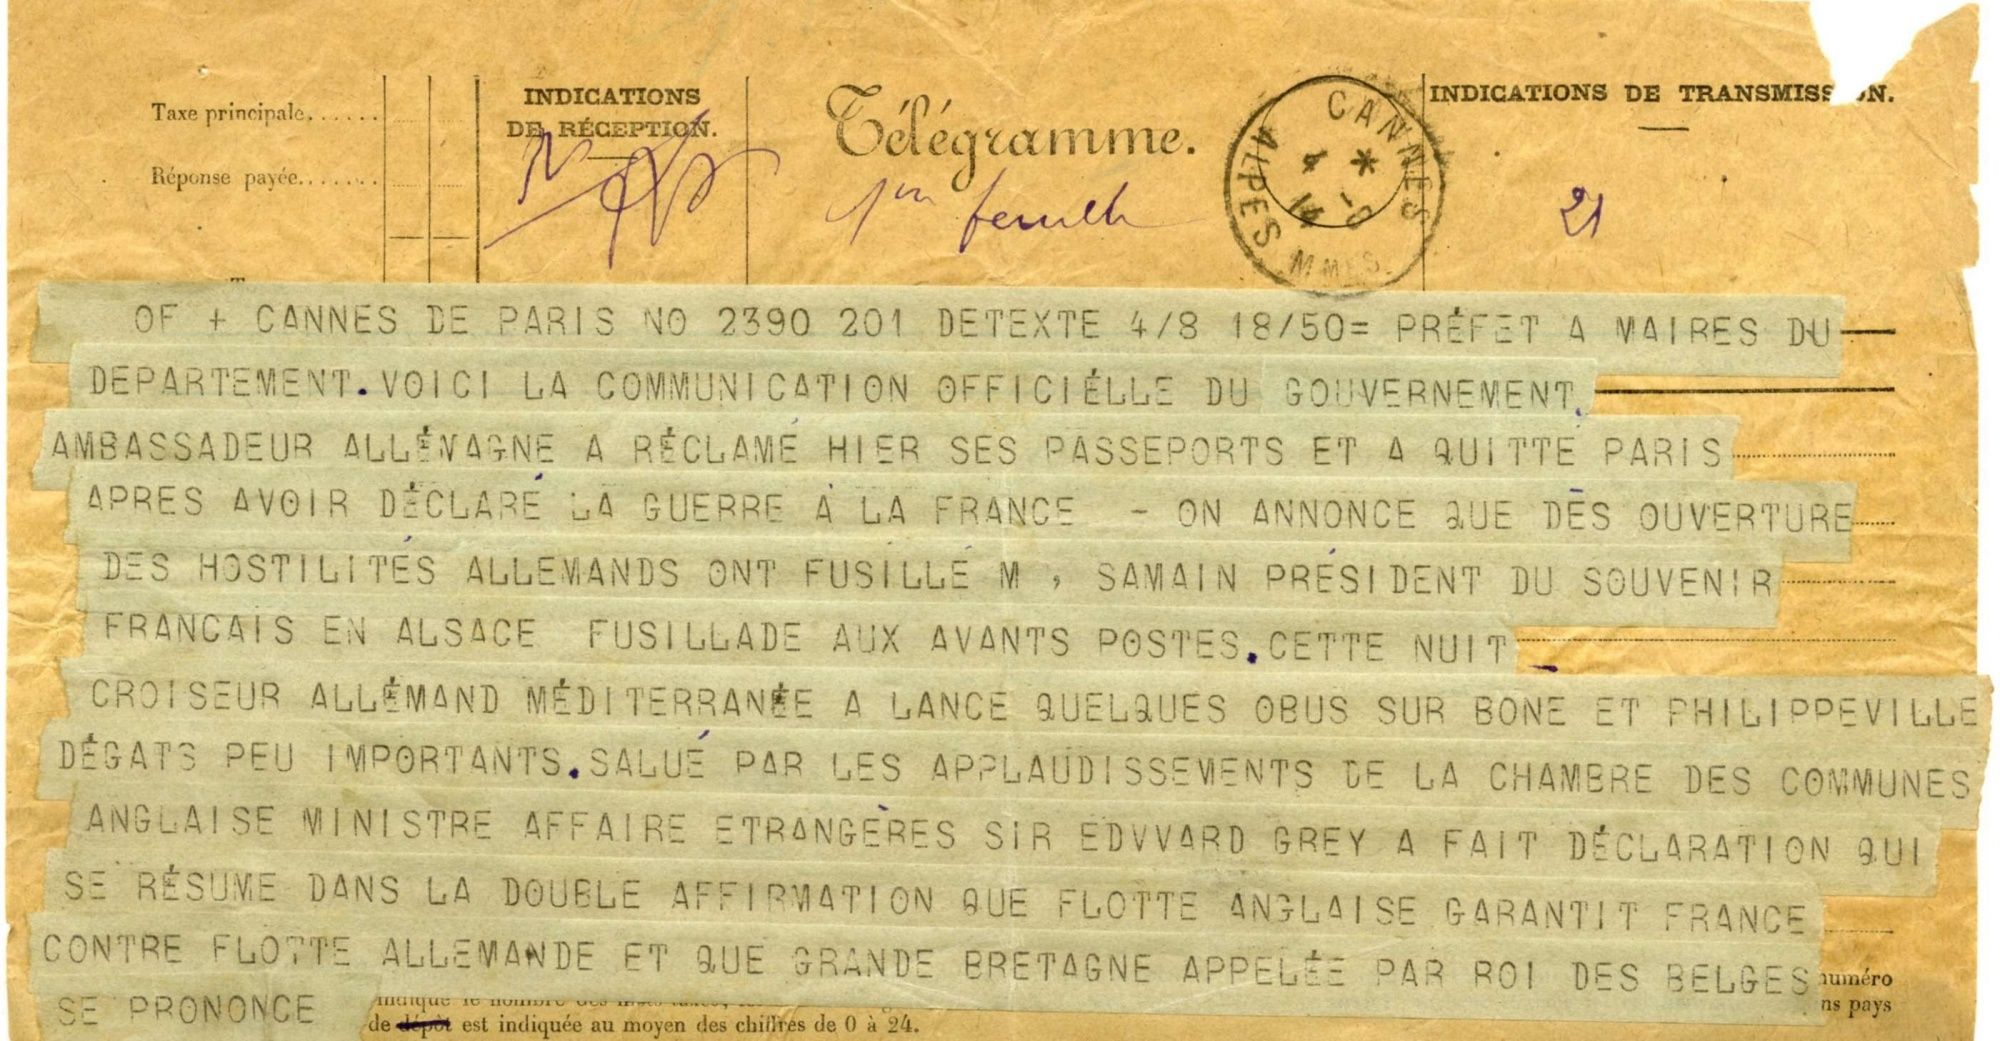 Taxe principale......
INDICATIONS
DE RÉCEPTION.
Télégramme.
INDICATIONS DE TRANSMISSION.
Réponse payée.......
CANNES
ALPES MMES
21
OF + CANNES DE PARIS NO 2390 201 DETEXTE 4/8 18/50= PRÉFET A MAIRES DU
DEPARTEMENT.VOICI LA COMMUNICATION OFFICIÉLLE DU GOUVERNEMENT.
AMBASSADEUR ALLÉMAGNE A RÉCLAMÉ HIER SES PASSEPORTS ET A QUITTÉ PARIS
APRES AVOIR DÉCLARÉ LA GUERRE A LA FRANCE - ON ANNONCE QUE DÈS OUVERTURE
DES HOSTILITÉS ALLEMANDS ONT FUSILLÉ M , SAMAIN PRÉSIDENT DU SOUVENIR
FRANCAIS EN ALSACE FUSILLADE AUX AVANTS POSTES.CETTE NUIT
CROISEUR ALLÉMAND MÉDITERRANÉE A LANCÉ QUELQUES OBUS SUR BONE ET PHILIPPEVILLE
DÉGATS PEU IMPORTANTS.SALUÉ PAR LES APPLAUDISSEMENTS DE LA CHAMBRE DES COMMUNES
ANGLAISE MINISTRE AFFAIRE ETRANGÈRES SIR EDVVARD GREY A FAIT DÉCLARATION QUI
SE RÉSUME DANS LA DOUBLE AFFIRMATION QUE FLOTTE ANGLAISE GARANTIT FRANCE
CONTRE FLOTTE ALLEMANDE ET QUE GRANDE BRETAGNE APPELÉE PAR ROI DES BELGES
numéro
SE PRONONCE
indique le nombre des mots taxés,
pays
de dépôt est indiquée au moyen des chiffres de 0 à 24.